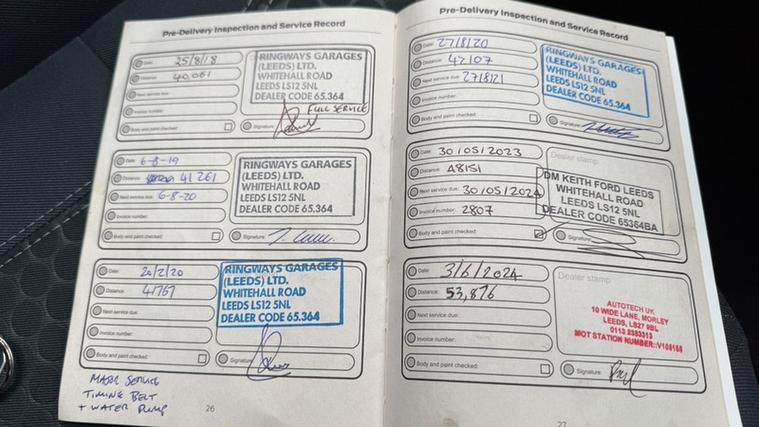 Pre-Delivery Inspection and Service Record
Date: 25/8/18
Distance: 40,061
Next service due:
Invoice number:
Body and paint checked:
RINGWAYS GARAGES
(LEEDS) LTD.
WHITEHALL ROAD
LEEDS LS12 5NL
DEALER CODE 65.364
FULL SERVICE
Signature:
Date: 6-8-19
Distance: 41261
Next service due: 6-8-20
Invoice number:
Body and paint checked:
RINGWAYS GARAGES
(LEEDS) LTD.
WHITEHALL ROAD
LEEDS LS12 5NL
DEALER CODE 65.364
Signature:
Date: 20/2/20
Distance: 41767
Next service due:
Invoice number:
Body and paint checked:
RINGWAYS GARAGES
(LEEDS) LTD.
WHITEHALL ROAD
LEEDS LS12 5NL
DEALER CODE 65.364
Signature:
SERVICE
TIMING BELT
+ WATER PUMP
26
Pre-Delivery Inspection and Service Record
Date: 27/8/20
Distance: 42107
Next service due: 27/8/21
Invoice number:
Body and paint checked:
RINGWAYS GARAGES
(LEEDS) LTD.
WHITEHALL ROAD
LEEDS LS12 5NL
DEALER CODE 65.364
Signature:
Date: 30/05/2023
Distance: 48151
Next service due: 30/05/2024
Invoice number: 2807
Body and paint checked:
Dealer stamp
DM KEITH FORD LEEDS
WHITEHALL ROAD
LEEDS LS12 5NL
DEALER CODE 65364BA
Signature:
Date: 3/6/2024
Distance: 53,876
Next service due:
Invoice number:
Body and paint checked:
Dealer stamp
AUTOTECH UK
10 WIDE LANE, MORLEY
LEEDS, LS27 9BL
0113 2383313
MOT STATION NUMBER:
Signature:
27